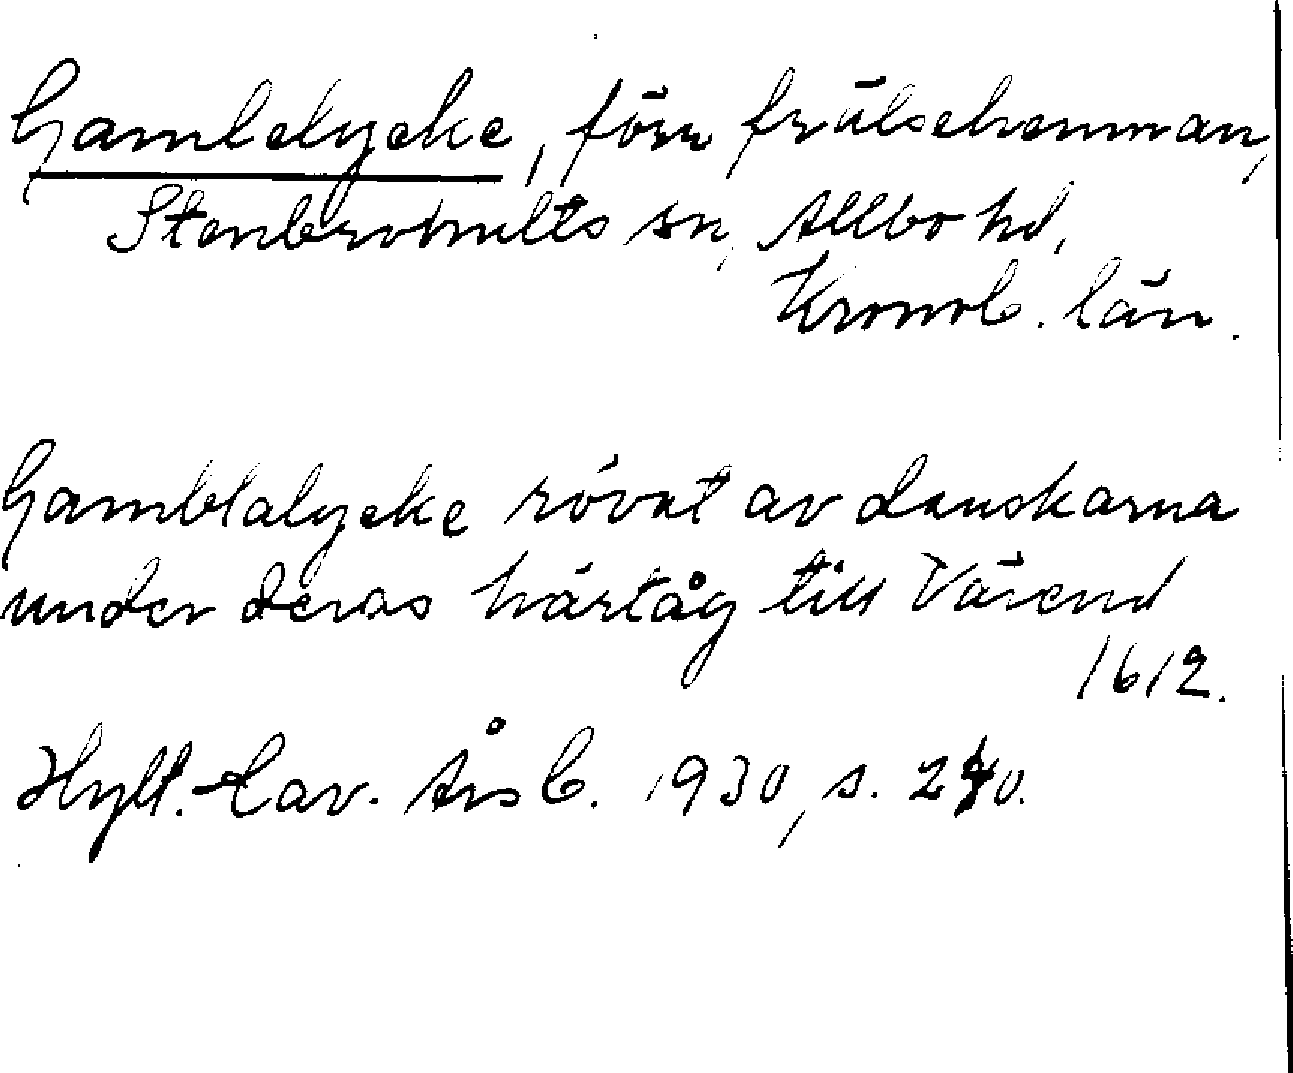 Gamlelycke, förr frälsehemman,
Stenbrohults sn, Allbo hd,
Kronob. län.
Gamblalycke rövat av danskarna
under deras härtåg till Värend
1612.
Hylt.-Cav. Årsb. 1930, s. 240.